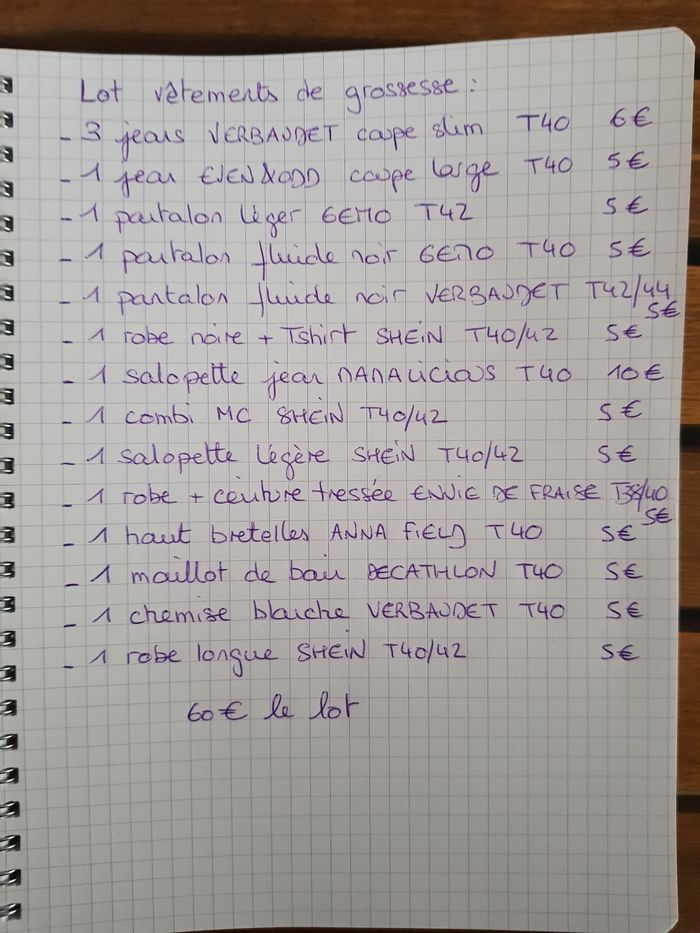 Lot vêtements de grossesse :
- 3 jeans VERBAUDET coupe slim T40 6€
- 1 jean EVEN&ODD coupe large T40 5€
- 1 pantalon léger GEMO T42 5€
- 1 pantalon fluide noir GEMO T40 5€
- 1 pantalon fluide noir VERBAUDET T42/44
5€
- 1 robe noire + Tshirt SHEiN T40/42 5€
- 1 salopette jean MAMALICIOUS T40 10€
- 1 combi MC SHEiN T40/42 5€
- 1 salopette légère SHEiN T40/42 5€
- 1 robe + ceinture tressée ENVIE DE FRAISE T38/40
5€
- 1 haut bretelles ANNA FiELD T40 5€
- 1 maillot de bain DECATHLON T40 5€
- 1 chemise blanche VERBAUDET T40 5€
- 1 robe longue SHEiN T40/42 5€
60€ le lot